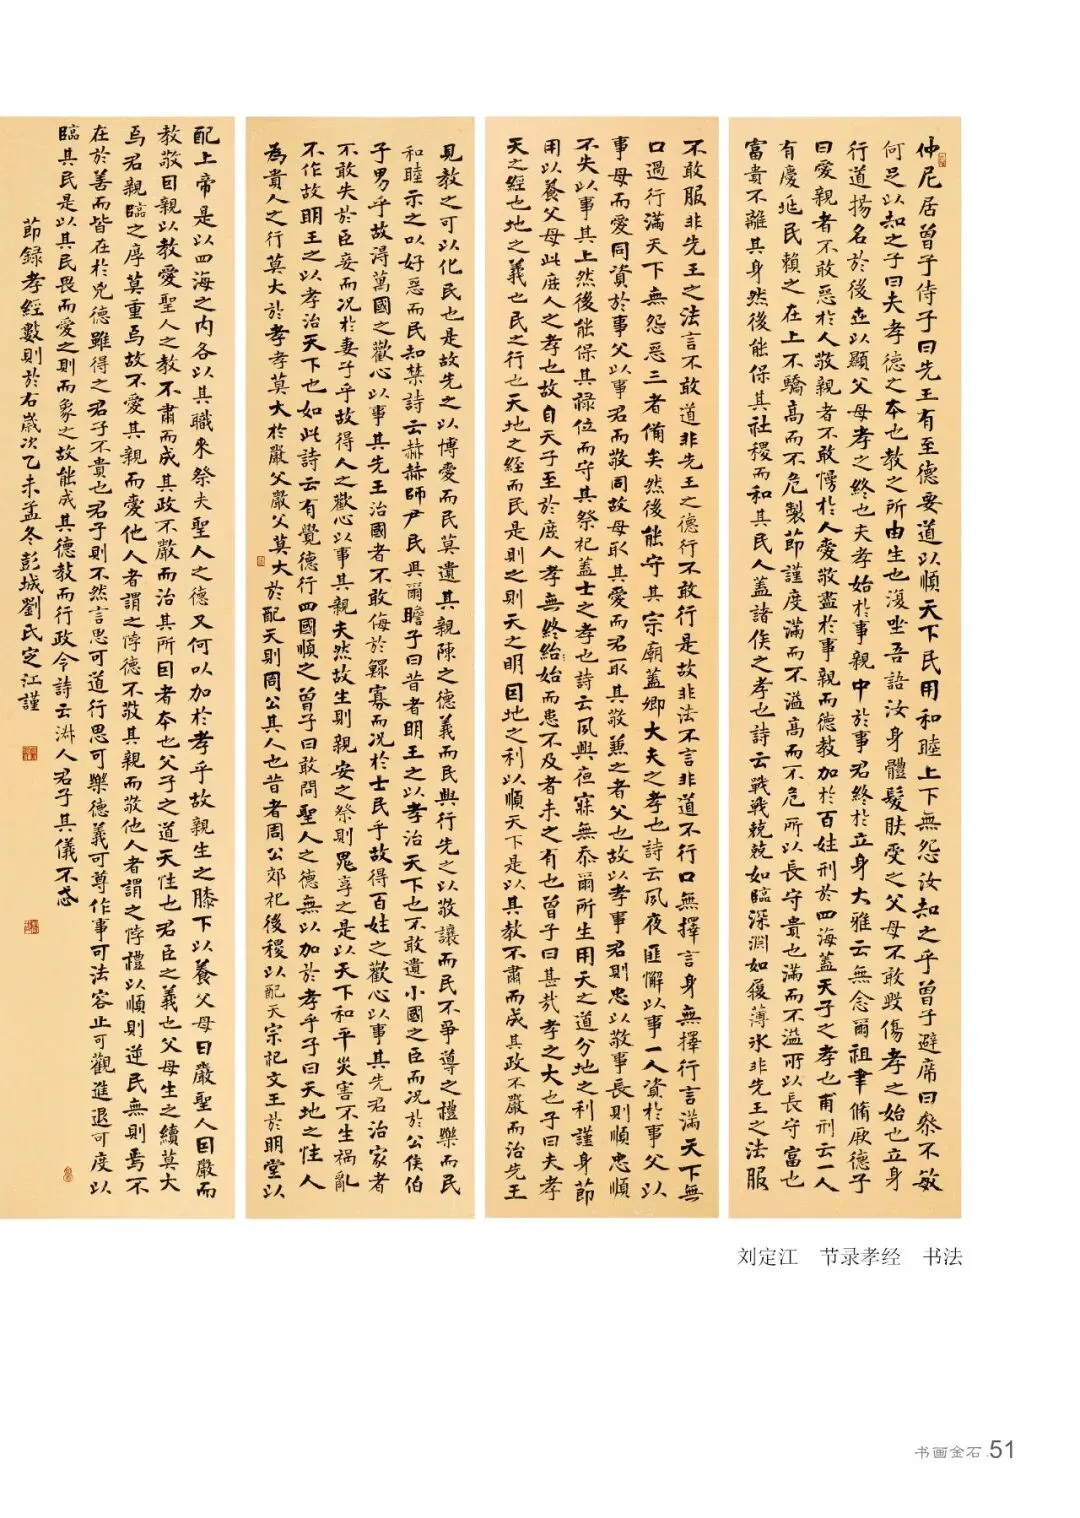 仲尼居曾子侍子曰先王有至德要道以順天下民用和睦上下無怨汝知之乎曾子避席曰參不敏
何足以知之子曰夫孝德之本也教之所由生也復坐吾語汝身體髮肤受之父母不敢毀傷孝之始也立身
行道揚名於後世以顯父母孝之終也夫孝始於事親中於事君終於立身大雅云無念爾祖聿脩厥德子
曰愛親者不敢惡於人敬親者不敢慢於人愛敬盡於事親而德教加於百姓刑於四海蓋天子之孝也甫刑云一人
有慶兆民賴之在上不驕高而不危製節謹度滿而不溢高而不危所以長守貴也滿而不溢所以長守富也
富貴不離其身然後能保其社稷而和其民人蓋諸侯之孝也詩云戰戰兢兢如臨深淵如履薄氷非先王之法服
不敢服非先王之法言不敢道非先王之德行不敢行是故非法不言非道不行口無擇言身無擇行言滿天下無
口過行滿天下無怨惡三者備矣然後能守其宗廟蓋卿大夫之孝也詩云夙夜匪懈以事一人資於事父以
事母而愛同資於事父以事君而敬同故母取其愛而君取其敬兼之者父也故以孝事君則忠以敬事長則順忠順
不失以事其上然後能保其祿位而守其祭祀蓋士之孝也詩云夙興夜寐無忝爾所生用天之道分地之利謹身節
用以養父母此庶人之孝也故自天子至於庶人孝無終始而患不及者未之有也曾子曰甚哉孝之大也子曰夫孝
天之經也地之義也民之行也天地之經而民是則之則天之明因地之利以順天下是以其教不肅而成其政不嚴而治先王
見教之可以化民也是故先之以博愛而民莫遺其親陳之德義而民興行先之以敬讓而民不爭導之禮樂而民
和睦示之以好惡而民知禁詩云赫赫師尹民具爾瞻子曰昔者明王之以孝治天下也不敢遺小國之臣而况於公侯伯
子男乎故得萬國之歡心以事其先王治國者不敢侮於鰥寡而况於士民乎故得百姓之歡心以事其先君治家者
不敢失於臣妾而况於妻子乎故得人之歡心以事其親夫然故生則親安之祭則鬼享之是以天下和平災害不生禍亂
不作故明王之以孝治天下也如此詩云有覺德行四國順之曾子曰敢問聖人之德無以加於孝乎子曰天地之性人
為貴人之行莫大於孝孝莫大於嚴父嚴父莫大於配天則周公其人也昔者周公郊祀後稷以配天宗祀文王於明堂以
配上帝是以四海之内各以其職來祭夫聖人之德又何以加於孝乎故親生之膝下以養父母日嚴聖人因嚴而
教敬因親以教愛聖人之教不肅而成其政不嚴而治其所因者本也父子之道天性也君臣之義也父母生之續莫大
焉君親臨之厚莫重焉故不愛其親而愛他人者謂之悖德不敬其親而敬他人者謂之悖禮以順則逆民無則焉不
在於善而皆在於兇德雖得之君子不貴也君子則不然言思可道行思可樂德義可尊作事可法容止可觀進退可度以
臨其民是以其民畏而愛之則而象之故能成其德教而行政令詩云淑人君子其儀不忒
節録孝經數則於右歲次乙未孟冬彭城劉氏定江謹
刘定江 节录孝经 书法
书画金石.51